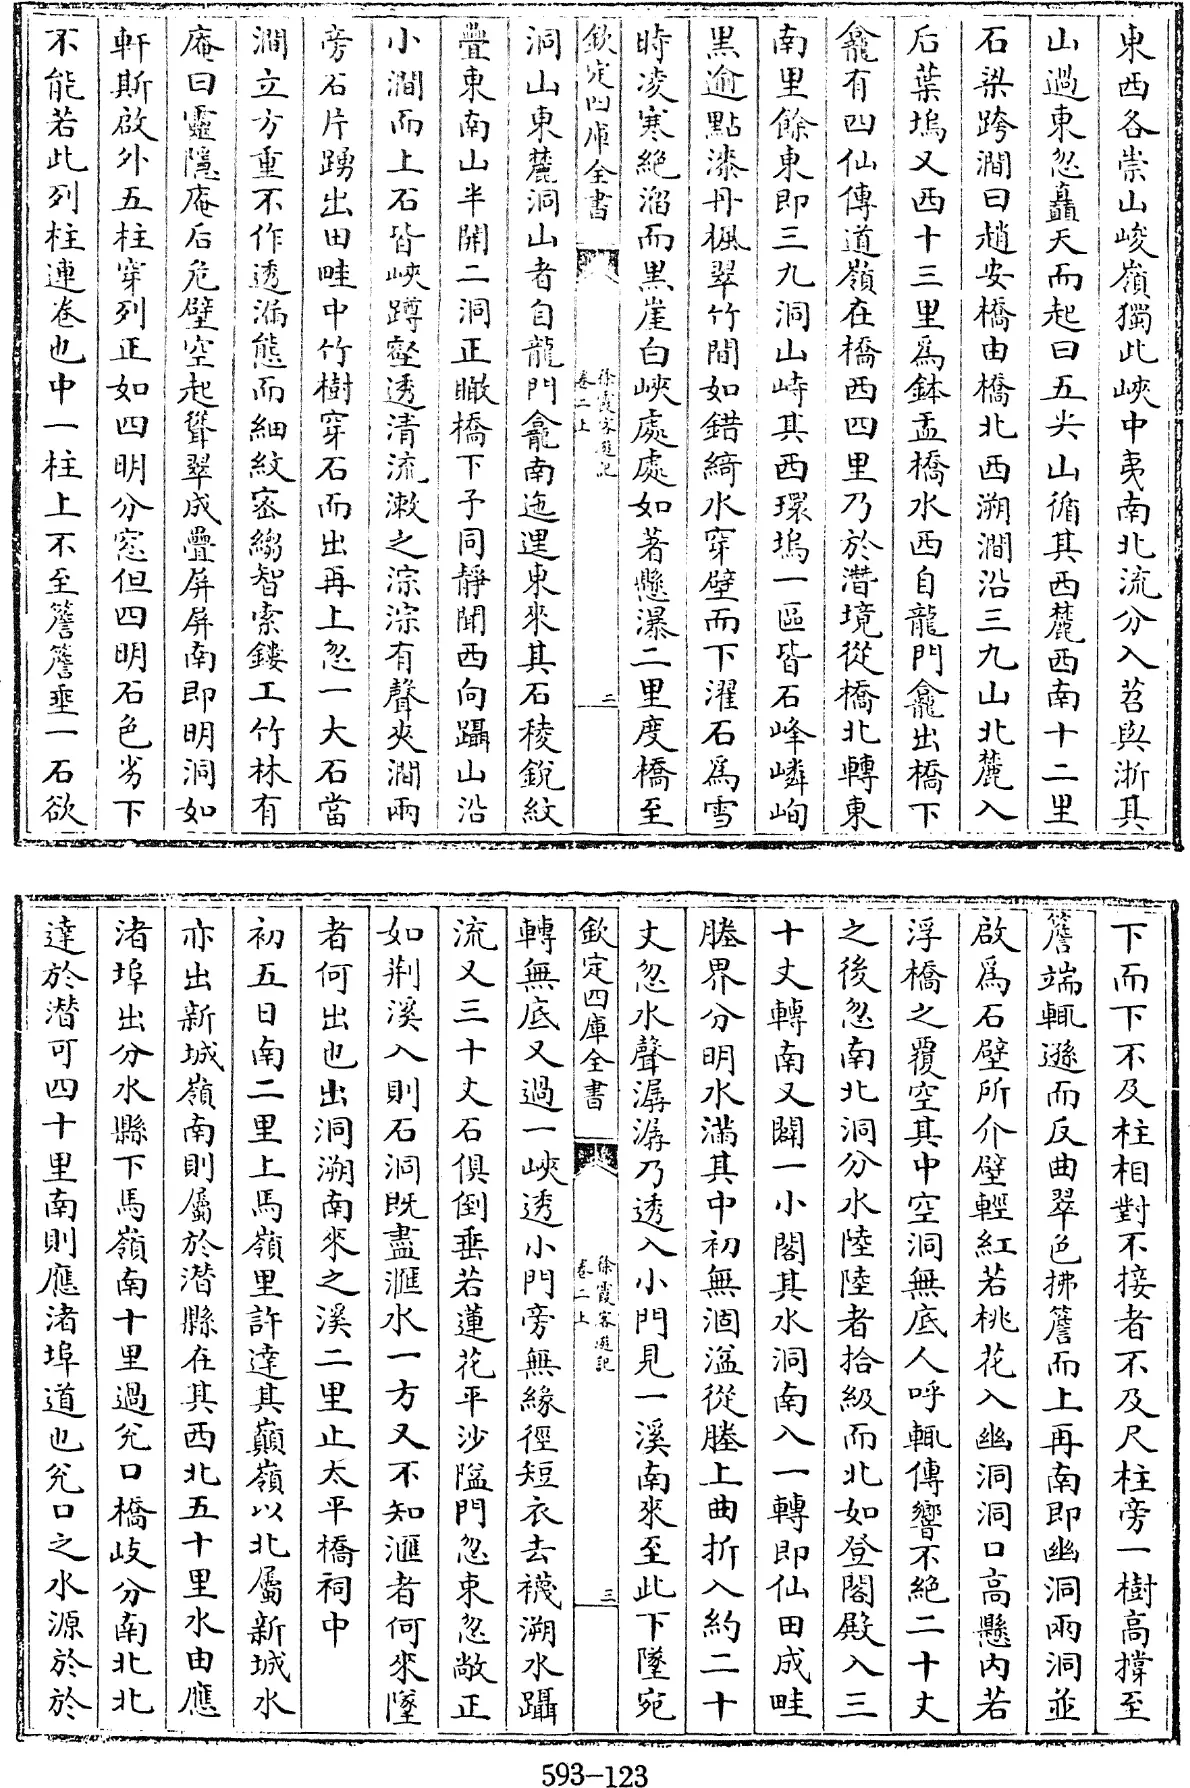 東西各崇山峻嶺獨此峽中夷南北流分入苕與淅其
山過東忽矗天而起曰五尖山循其西麓西南十二里
石梁跨澗曰趙安橋由橋北西溯澗沿三九山北麓入
后葉塢又西十三里為鉢盂橋水西自龍門龕出橋下
龕有四仙傳道嶺在橋西四里乃於潛境從橋北轉東
南里餘東即三九洞山峙其西環塢一區皆石峰嶙峋
黑逾點漆丹楓翠竹間如錯綺水穿壁而下濯石為雪
時凌寒絕溜而黑崖白峽處處如著懸瀑二里度橋至
欽定四庫全書
徐霞客遊記
卷二上
三
洞山東麓洞山者自龍門龕南迤邐東來其石稜銳紋
疊東南山半開二洞正瞰橋下予同靜聞西向躡山沿
小澗而上石皆峽蹲壑透清流漱之淙淙有聲夾澗兩
旁石片踴出田畦中竹樹穿石而出再上忽一大石當
澗立方重不作透漏態而細紋密縐智索鏤工竹林有
庵曰靈隱庵后危壁空起聳翠成疊屏屏南即明洞如
軒斯啟外五柱穿列正如四明分窓但四明石色劣下
不能若此列柱連卷也中一柱上不至簷簷垂一石欲
下而下不及柱相對不接者不及尺柱旁一樹高撐至
簷端輒遜而反曲翠色拂簷而上再南即幽洞兩洞並
啟為石壁所介壁輕紅若桃花入幽洞洞口高懸内若
浮橋之覆空其中空洞無底人呼輒傳響不絕二十丈
之後忽南北洞分水陸陸者拾級而北如登閣殿入三
十丈轉南又闢一小閣其水洞南入一轉即仙田成畦
塍界分明水滿其中初無涸溢從塍上曲折入約二十
丈忽水聲潺潺乃透入小門見一溪南來至此下墜宛
欽定四庫全書
徐霞客遊記
卷二上
三
轉無底又過一峽透小門旁無緣徑短衣去襪溯水躡
流又三十丈石俱倒垂若蓮花平沙隘門忽東忽敞正
如荆溪入則石洞既盡滙水一方又不知滙者何來墜
者何出也出洞溯南來之溪二里止太平橋祠中
初五日南二里上馬嶺里許達其巔嶺以北屬新城水
亦出新城嶺南則屬於潛縣在其西北五十里水由應
渚埠出分水縣下馬嶺南十里過兊口橋岐分南北北
達於潛可四十里南則應渚埠道也兊口之水源於於
593-123